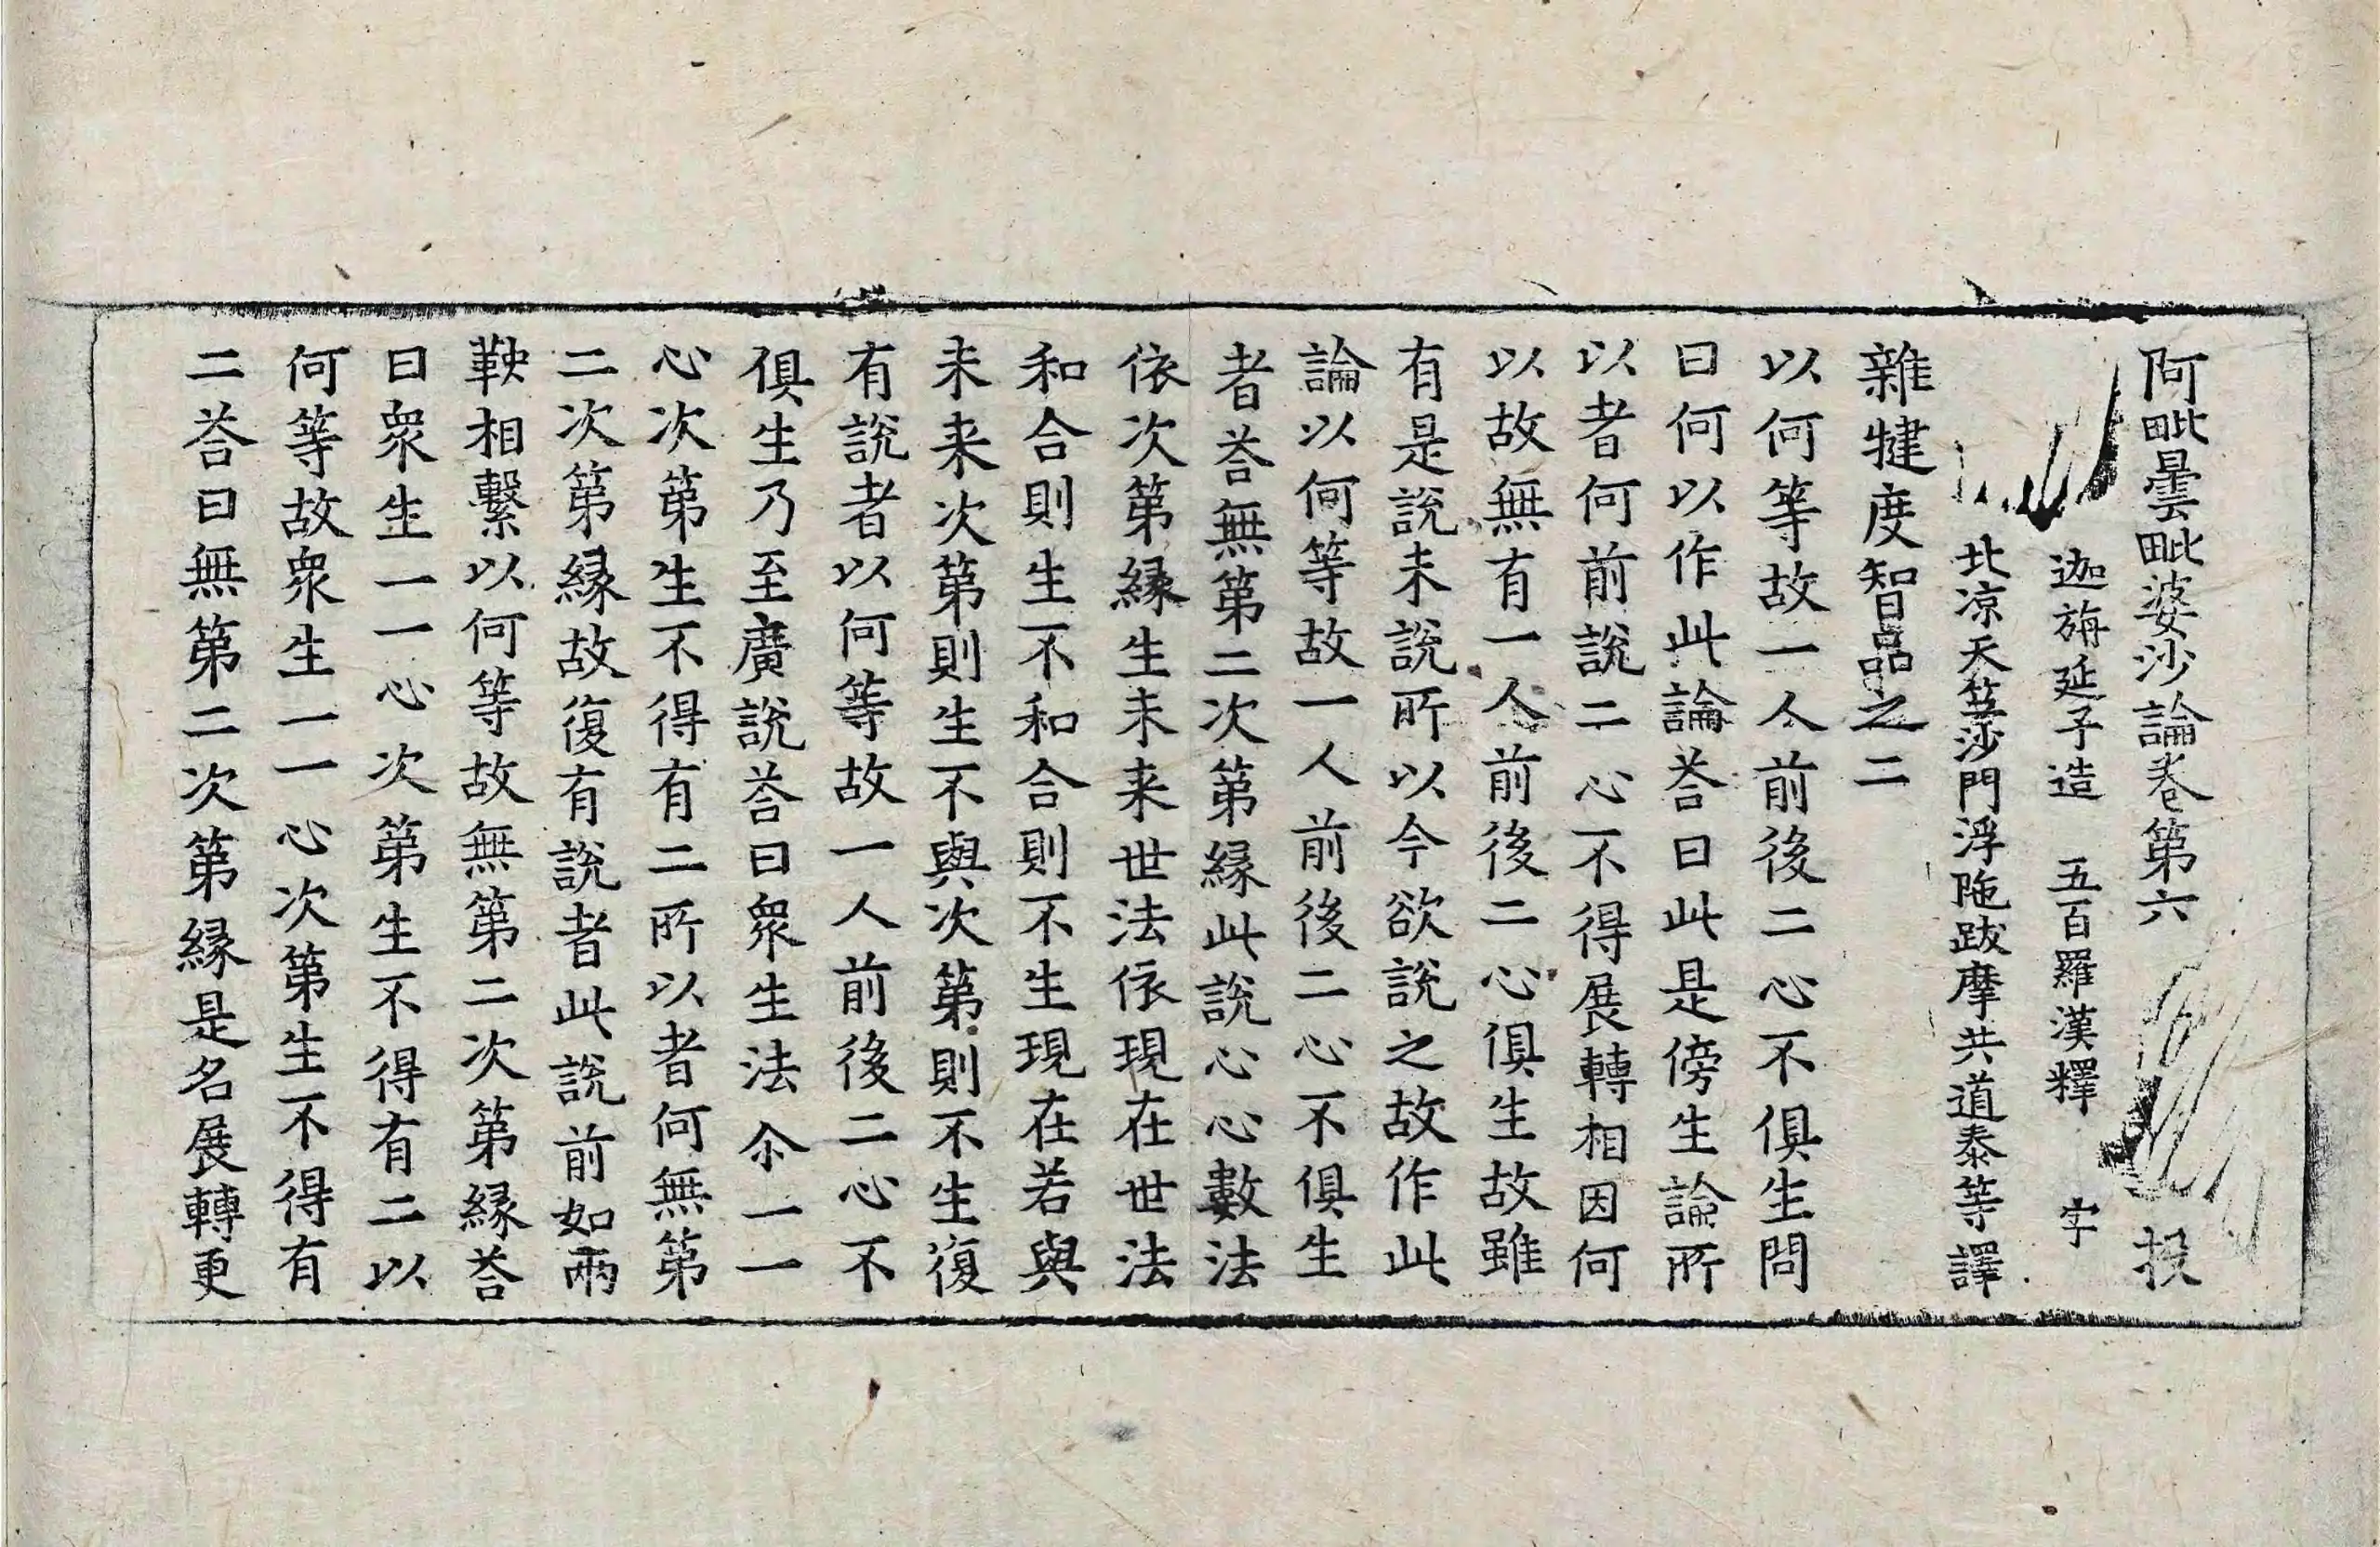 阿毗曇毗婆沙論卷第六 投
迦旃延子造 五百羅漢釋 字
北涼天竺沙門浮陁跋摩共道泰等譯
雜犍度智品之二
以何等故一人前後二心不俱生問
曰何以作此論荅曰此是傍生論所
以者何前說二心不得展轉相因何
以故無有一人前後二心俱生故雖
有是說未說所以今欲說之故作此
論以何等故一人前後二心不俱生
者荅無第二次第緣此說心心數法
依次第緣生未来世法依現在世法
和合則生不和合則不生現在若與
未来次第則生不與次第則不生復
有說者以何等故一人前後二心不
俱生乃至廣說荅曰眾生法尒一一
心次第生不得有二所以者何無第
二次第緣故復有說者此說前如兩
鞅相繫以何等故無第二次第緣荅
曰眾生一一心次第生不得有二以
何等故眾生一一心次第生不得有
二荅曰無第二次第緣是名展轉更